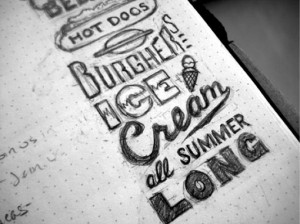 HOT DOGS
BURGHERS
ICE
Cream
all SUMMER
LONG